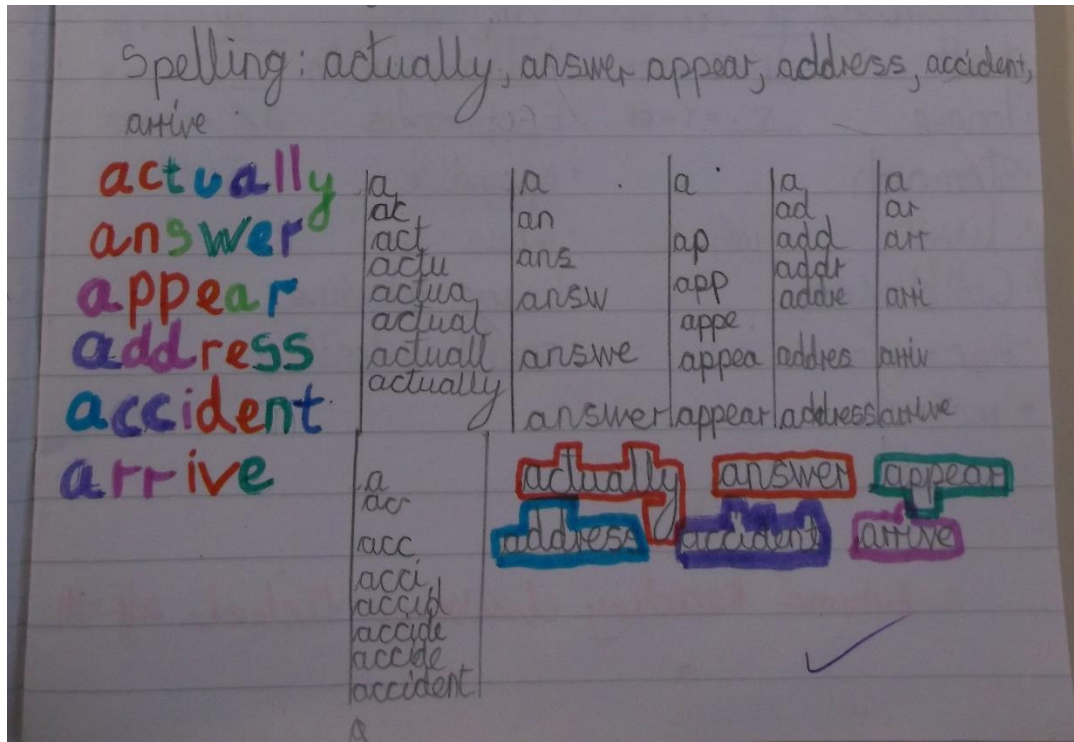 Spelling: actually, answer appear, address, accident,
arrive
actually
answer
appear
address
accident
arrive
a
ac
act
actu
actua
actual
actuall
actually
a
an
ans
answ
answe
answer
a
ap
app
appe
appea
appear
a
ad
add
addr
addre
addres
address
a
ar
arr
arri
arriv
arrive
a
ac
acc
acci
accid
accide
accide
accident
actually answer appear
address accident arrive